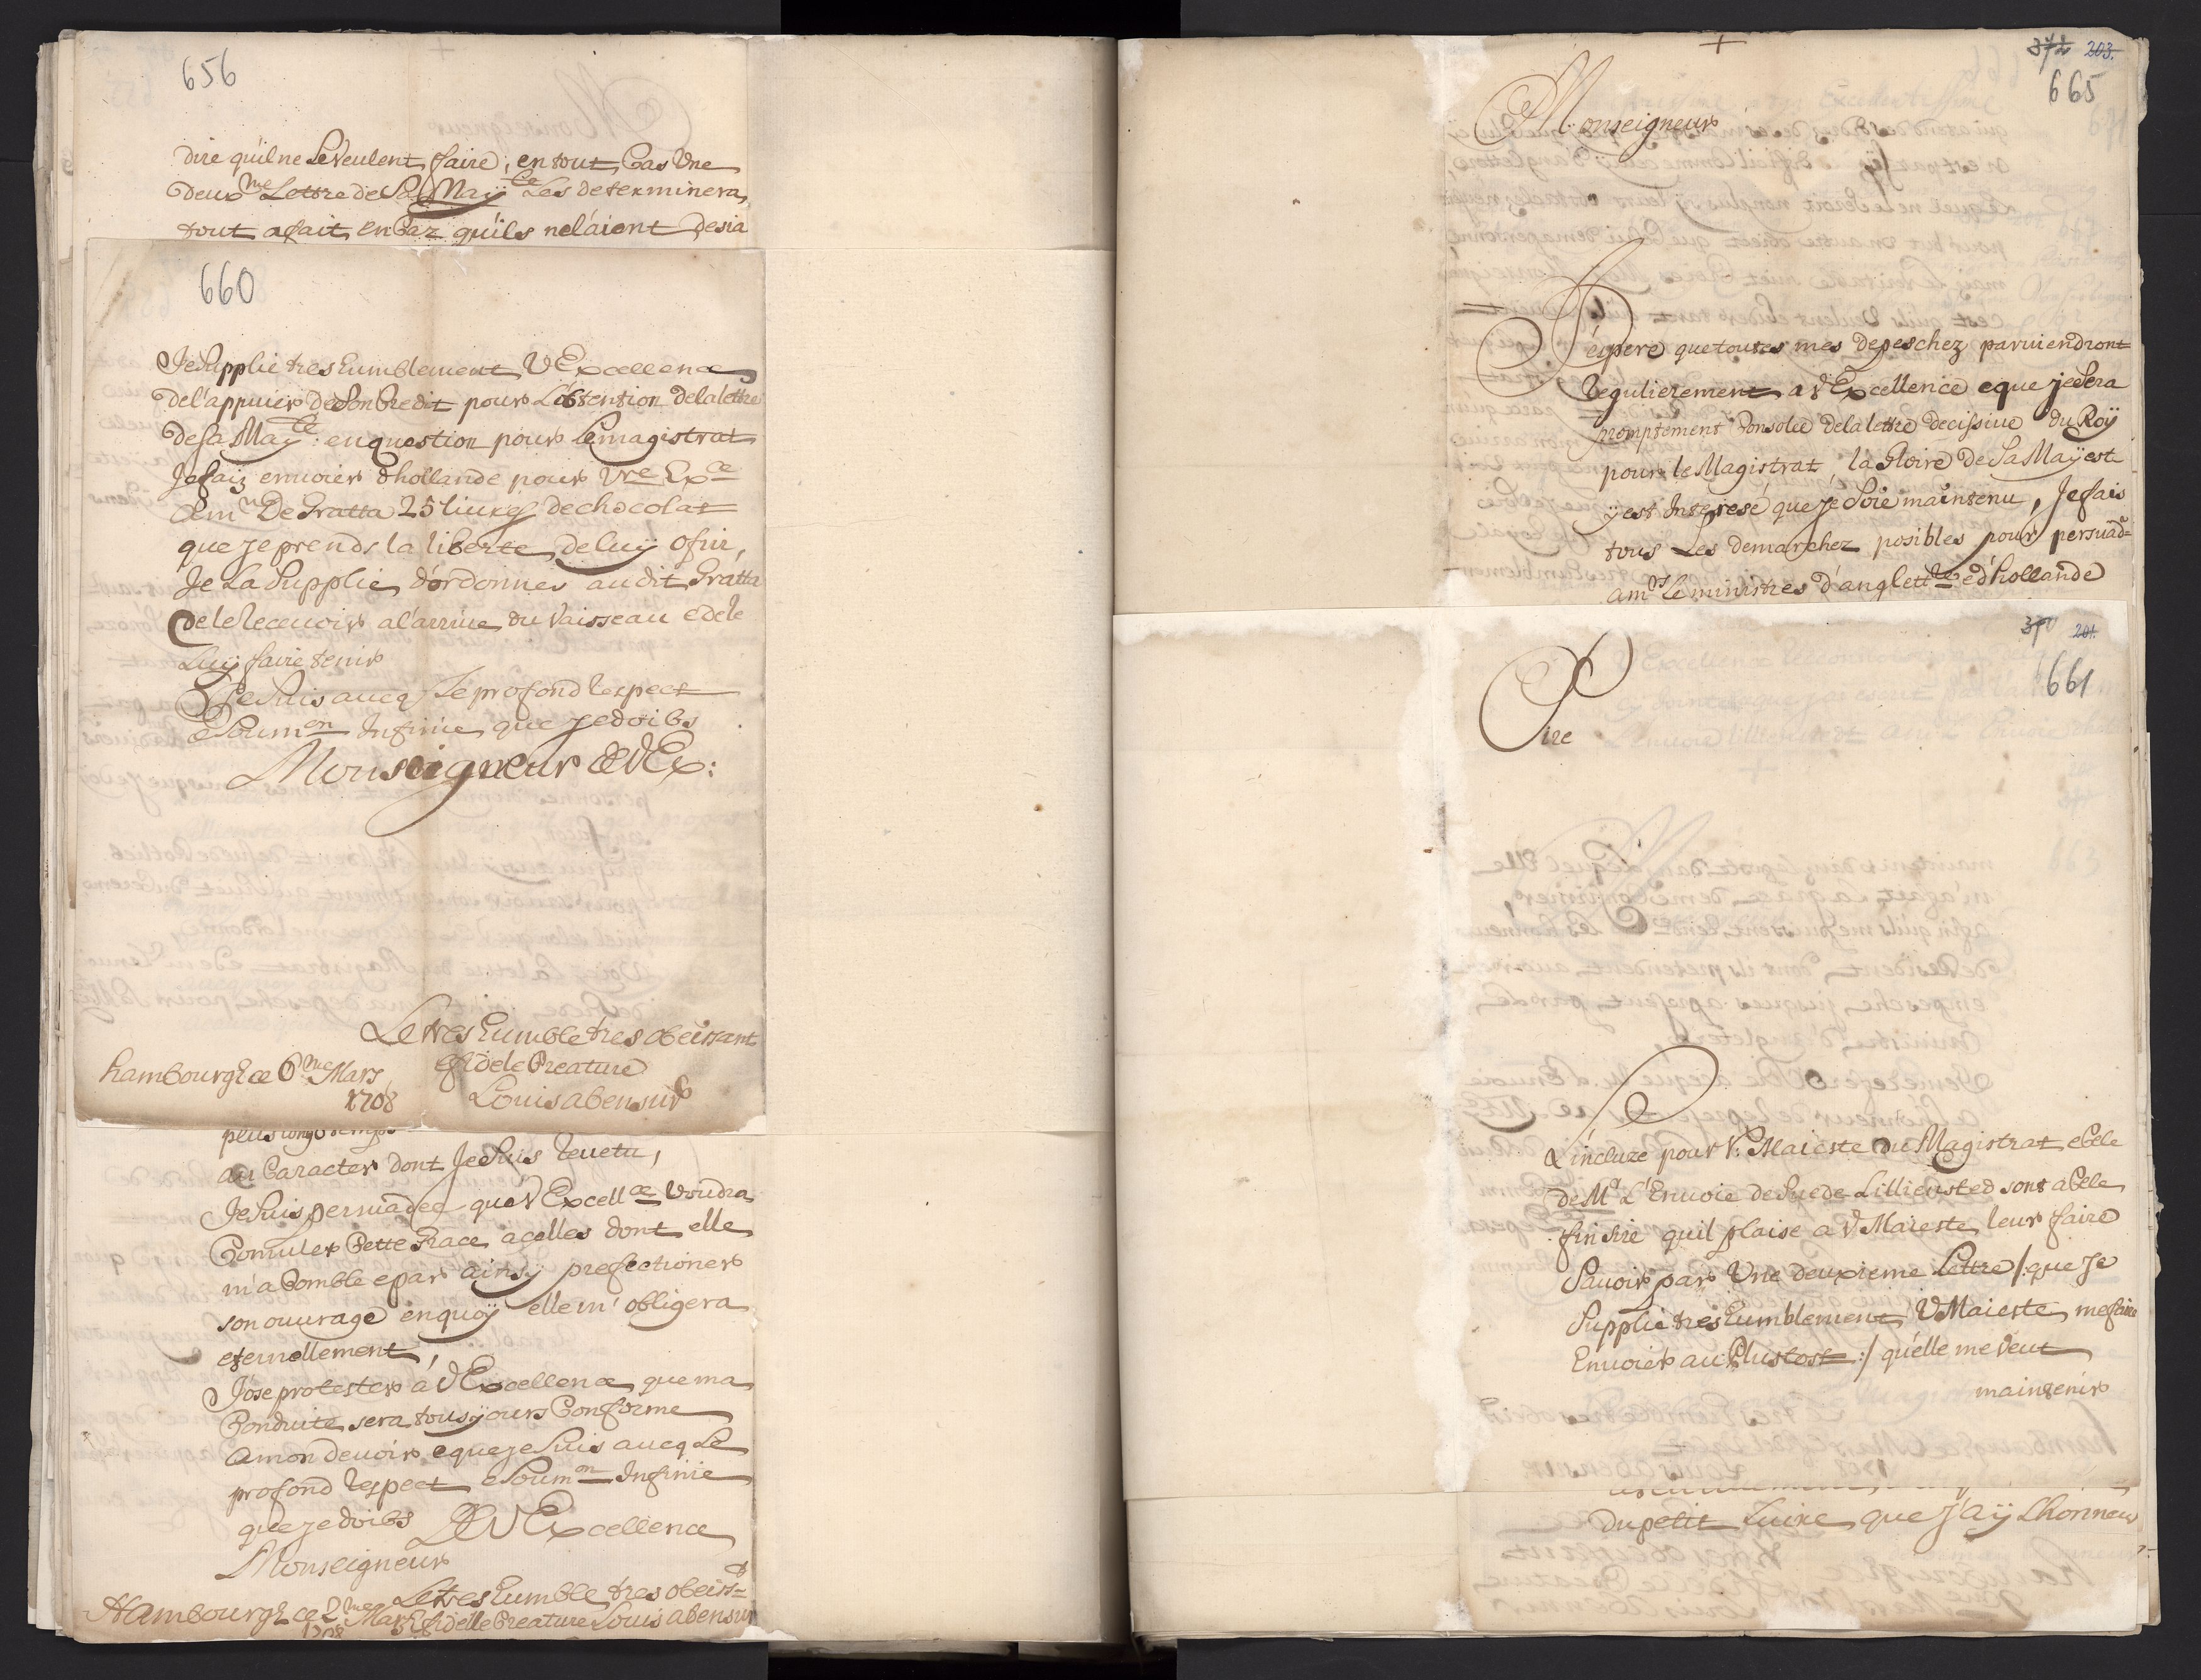 656
dire quil ne Le Veulent faire, en tout Cas Vne
deux.me Lettre de Sa May.te Les determinera
tout afait en Caz quils nel'aiont desia
660
Je Supplie tres humblement V Excellence
del'appuier de Son Credit pour L'obtention dela lettre
de Sa May.te: en question pour Le magistrat
Je faiz enuoier d hollande pour Vre Ex.ce
a m.r De Gratta 25 liures de chocolat
que je prends la liberte de luÿ ofrir,
Je La Supplie d'ordonner au dit Gratta
de le Receuoir a l'arriue du Vaisseau e de le
Luÿ faire tenir
Je Suis aucq Le profond Respect
e Soum.on Infinie que je doibs
Monseigneur De V Ex:
Le tres humble tres obeissant
hambourgh ce 6.me Mars
efidele Creature
1708
Louis abensur
plus longs temps
au Caracter dont Je Suis Reuetu,
Je Suis persuadee que V Excell.ce Voudra
Comuler Cette Grace a celles dont elle
m'a Comble e par ainsy prefectioner
son ouurage en quoÿ elle m' obligera
eternellement,
J'ose protester a V Excellence que ma
Conduite sera tousjours Conforme
a mon deuoir e que je Suis aucq Le
profond Respect e Soum.on Infinie
que je doibs De V Excellence
Monseigneur
Le tres humble tres obeiss.t
Hambourgh ce 2.me Mars efidelle Creature Louis abensur
1708
372 203.
665
Monseigneur
J'espere que toutes mes depeschez paruiendront
Regulierement a V Excellence e que je Sera
promptement Consolee dela lettre decissiue du Roÿ
pour le Magistrat, la Gloire de Sa Mayest
ÿ est Interesé que je Soie maintenu, Je fais
tous Les demarchez posibles pour persuad.e
a m.rs Le ministres d'anglett.re e d'hollande
370 201.
661
Sire
L'incluze pour V: Maieste du Magistrat e Cele
de M.r L'Enuoie de Suede Lillienste d sont a Cele
fin Sire quil plaise a V Maieste leur faire
Sauoir par Vne deuxieme Lettre /: que Je
Supplie tres humblement V Maieste me faire
Enuoier au Plustost :/ qu'elle me Veut
maintenir
du petit Luire que J'aÿ Lhonneur